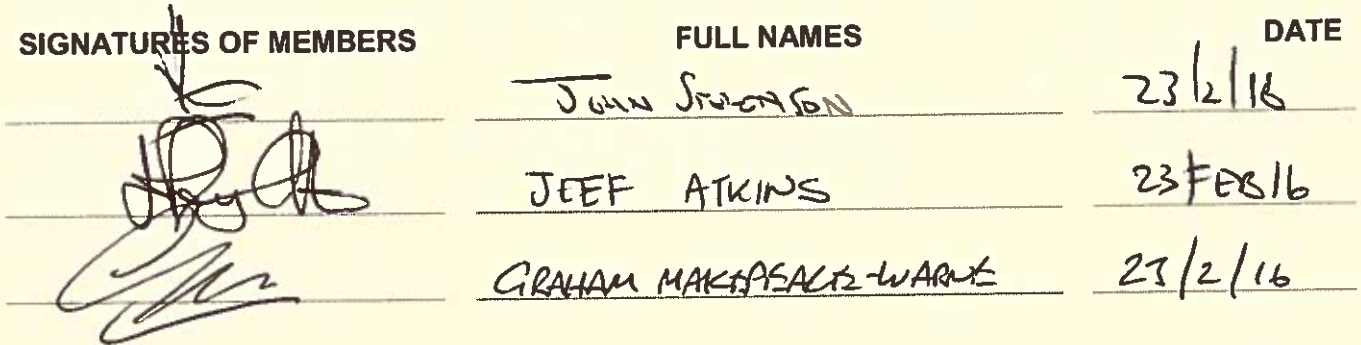 SIGNATURES OF MEMBERS FULL NAMES DATE
JOHN STEVENSON 23/2/16
JEFF ATKINS 23 FEB 16
GRAHAM MAKEPEACE-WARNE 23/2/16